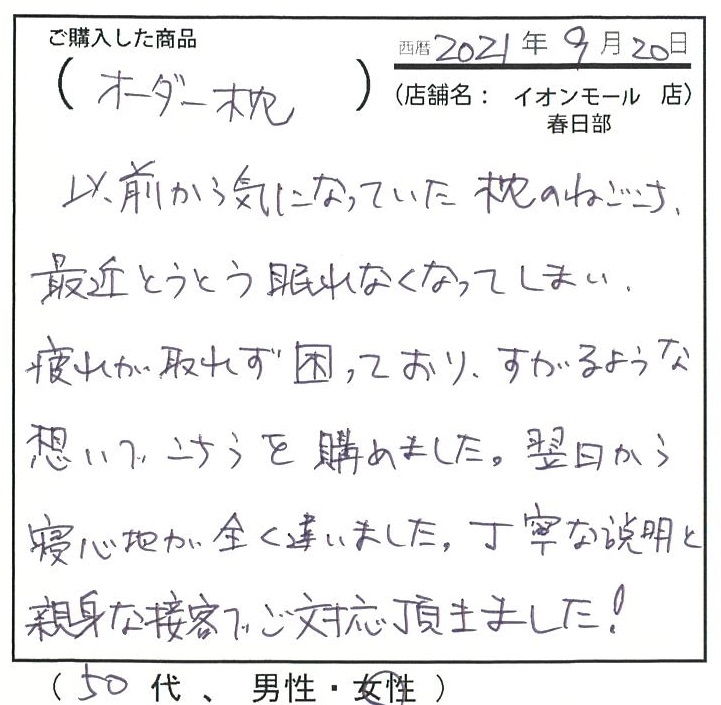 ご購入した商品
西暦 2021 年 9 月 20 日
( オーダー枕 )
(店舗名： イオンモール 店)
春日部
以前から気になっていた 枕のねごこち、
最近とうとう眠れなくなってしまい、
疲れが取れず困っており、すがるような
想いでこちらを購めました。翌日から
寝心地が全く違いました。丁寧な説明と
親身な接客でご対応頂きました!
( 50 代 、 男性・女性 )